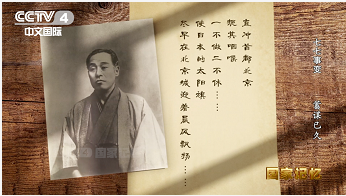 CCTV 4
中文国际
七七事变 蓄谋已久
直冲首都北京
扼其咽喉
一不做二不休……
使日本的太阳旗
尽早在北京城迎着晨风飘扬……
国家记忆